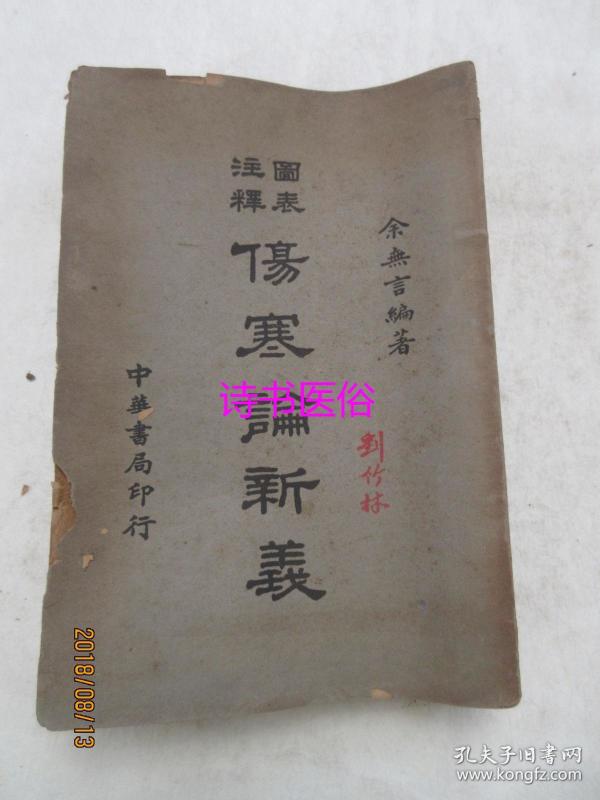 余無言編著
圖表
注釋
傷寒論新義
中華書局印行
劉竹林
诗书医俗
2018/08/13
孔夫子旧书网
www.kongfz.com